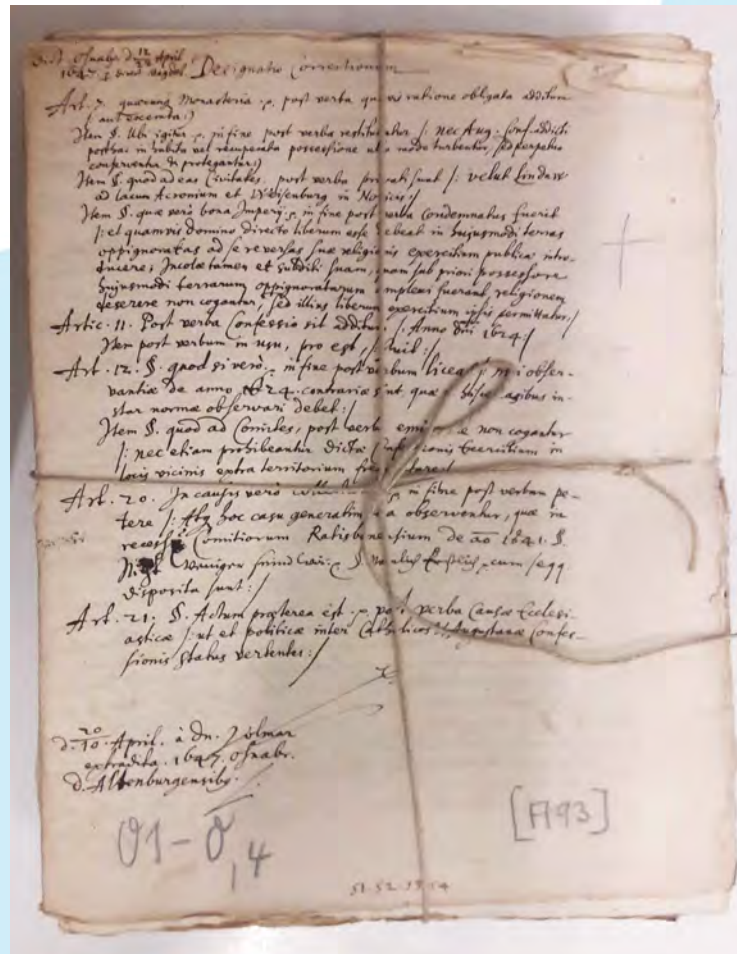 Dict. Osnabr. d. 12/22 April
1647. p. Designatio Correctionum
Art. 7. quaecunq Monasteria .p. post verba quavis ratione obligata additum
(: aut exempta:)
Item §. Ubi igitur .p. in fine post verba restituantur /: nec Aug. Conf. addicti
posthac in habita vel recuperata possessione ullo modo turbentur, sed perpetuo
conserventur & protegantur:)
Item §. quod ad eas Civitates, post verba privati sunt /: velut Lindaw
ad lacum Acronium et Weisenburg in Noricis:/
Item §. quae vero bona Imperij .p. in fine post verba condemnatus fuerit
/: et quamvis domino directo liberum esse debeat in hujusmodi terras
oppignoratas ad se reversas suae religionis exercitium publicu intro-
ducere, Incolae tamen et subditi suam, quam sub priori possessore
hujusmodi terrarum oppignoratarum amplexi fuerant, religionem
deserere non cogantur, sed illius liberum exercitium ipsis permittatur:/
Artic. 11. Post verba Confessio sit additur /: Anno dni 1624:/
Item post verbum in usu, pro est, /: fuit:/
Art. 12. §. quod si vero, .p. in fine post verbum liceat obser-
vantiae de anno 1624. contrariae sint quae agibus in-
star normae observari debet:/
Item §. quod ad Comites, post verba e non cogantur
/: nec etiam prohibeantur dictae Confessionis Exercitium in
locis vicinis extra territorium
Art. 20. In causis vero .p. in fine post verbum pe-
tere /: Atq hoc casu generatim ea observentur, quae in
recessu Comitiorum Ratisbonensium de ao 1641. §.
Nicht Weniger seind wir: § Nemlich Erstlich, cum seqq
disposita sunt:/
Art. 21. §. Actum praeterea est .p. post verba Causae Ecclesi-
asticae /: ut et politicae inter Catholicos & Augustanae Confes-
sionis status vertentes:/
d. 20/10. April. à dn. Volmar
extradita. 1647. Osnabr.
d. Altenburgensib9.
[A93]
51.52.